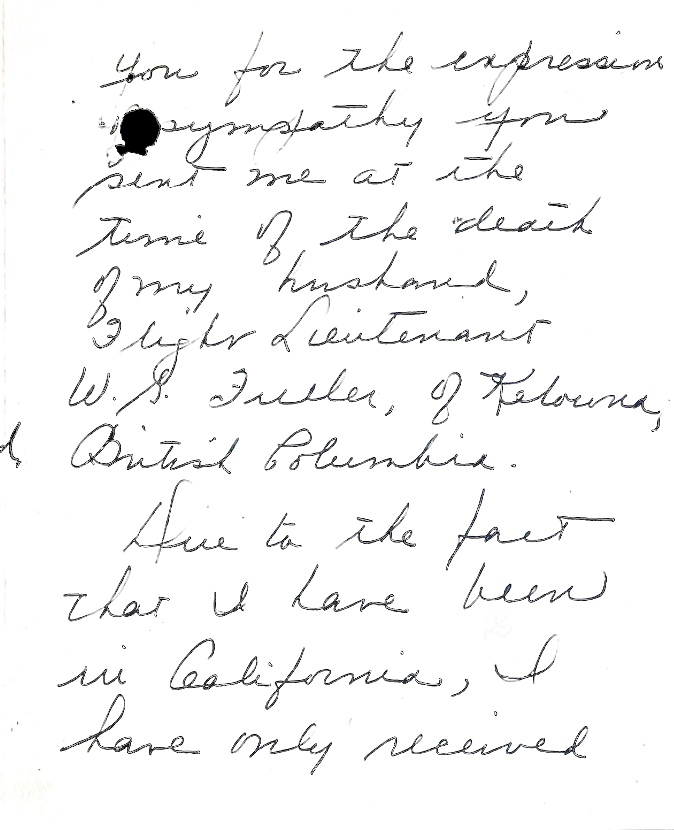 you for the expression
of sympathy you
sent me at the
time of the death
of my husband,
Flight Lieutenant
W. S. Fuller, of Kelowna,
British Columbia.
Due to the fact
that I have been
in California, I
have only received